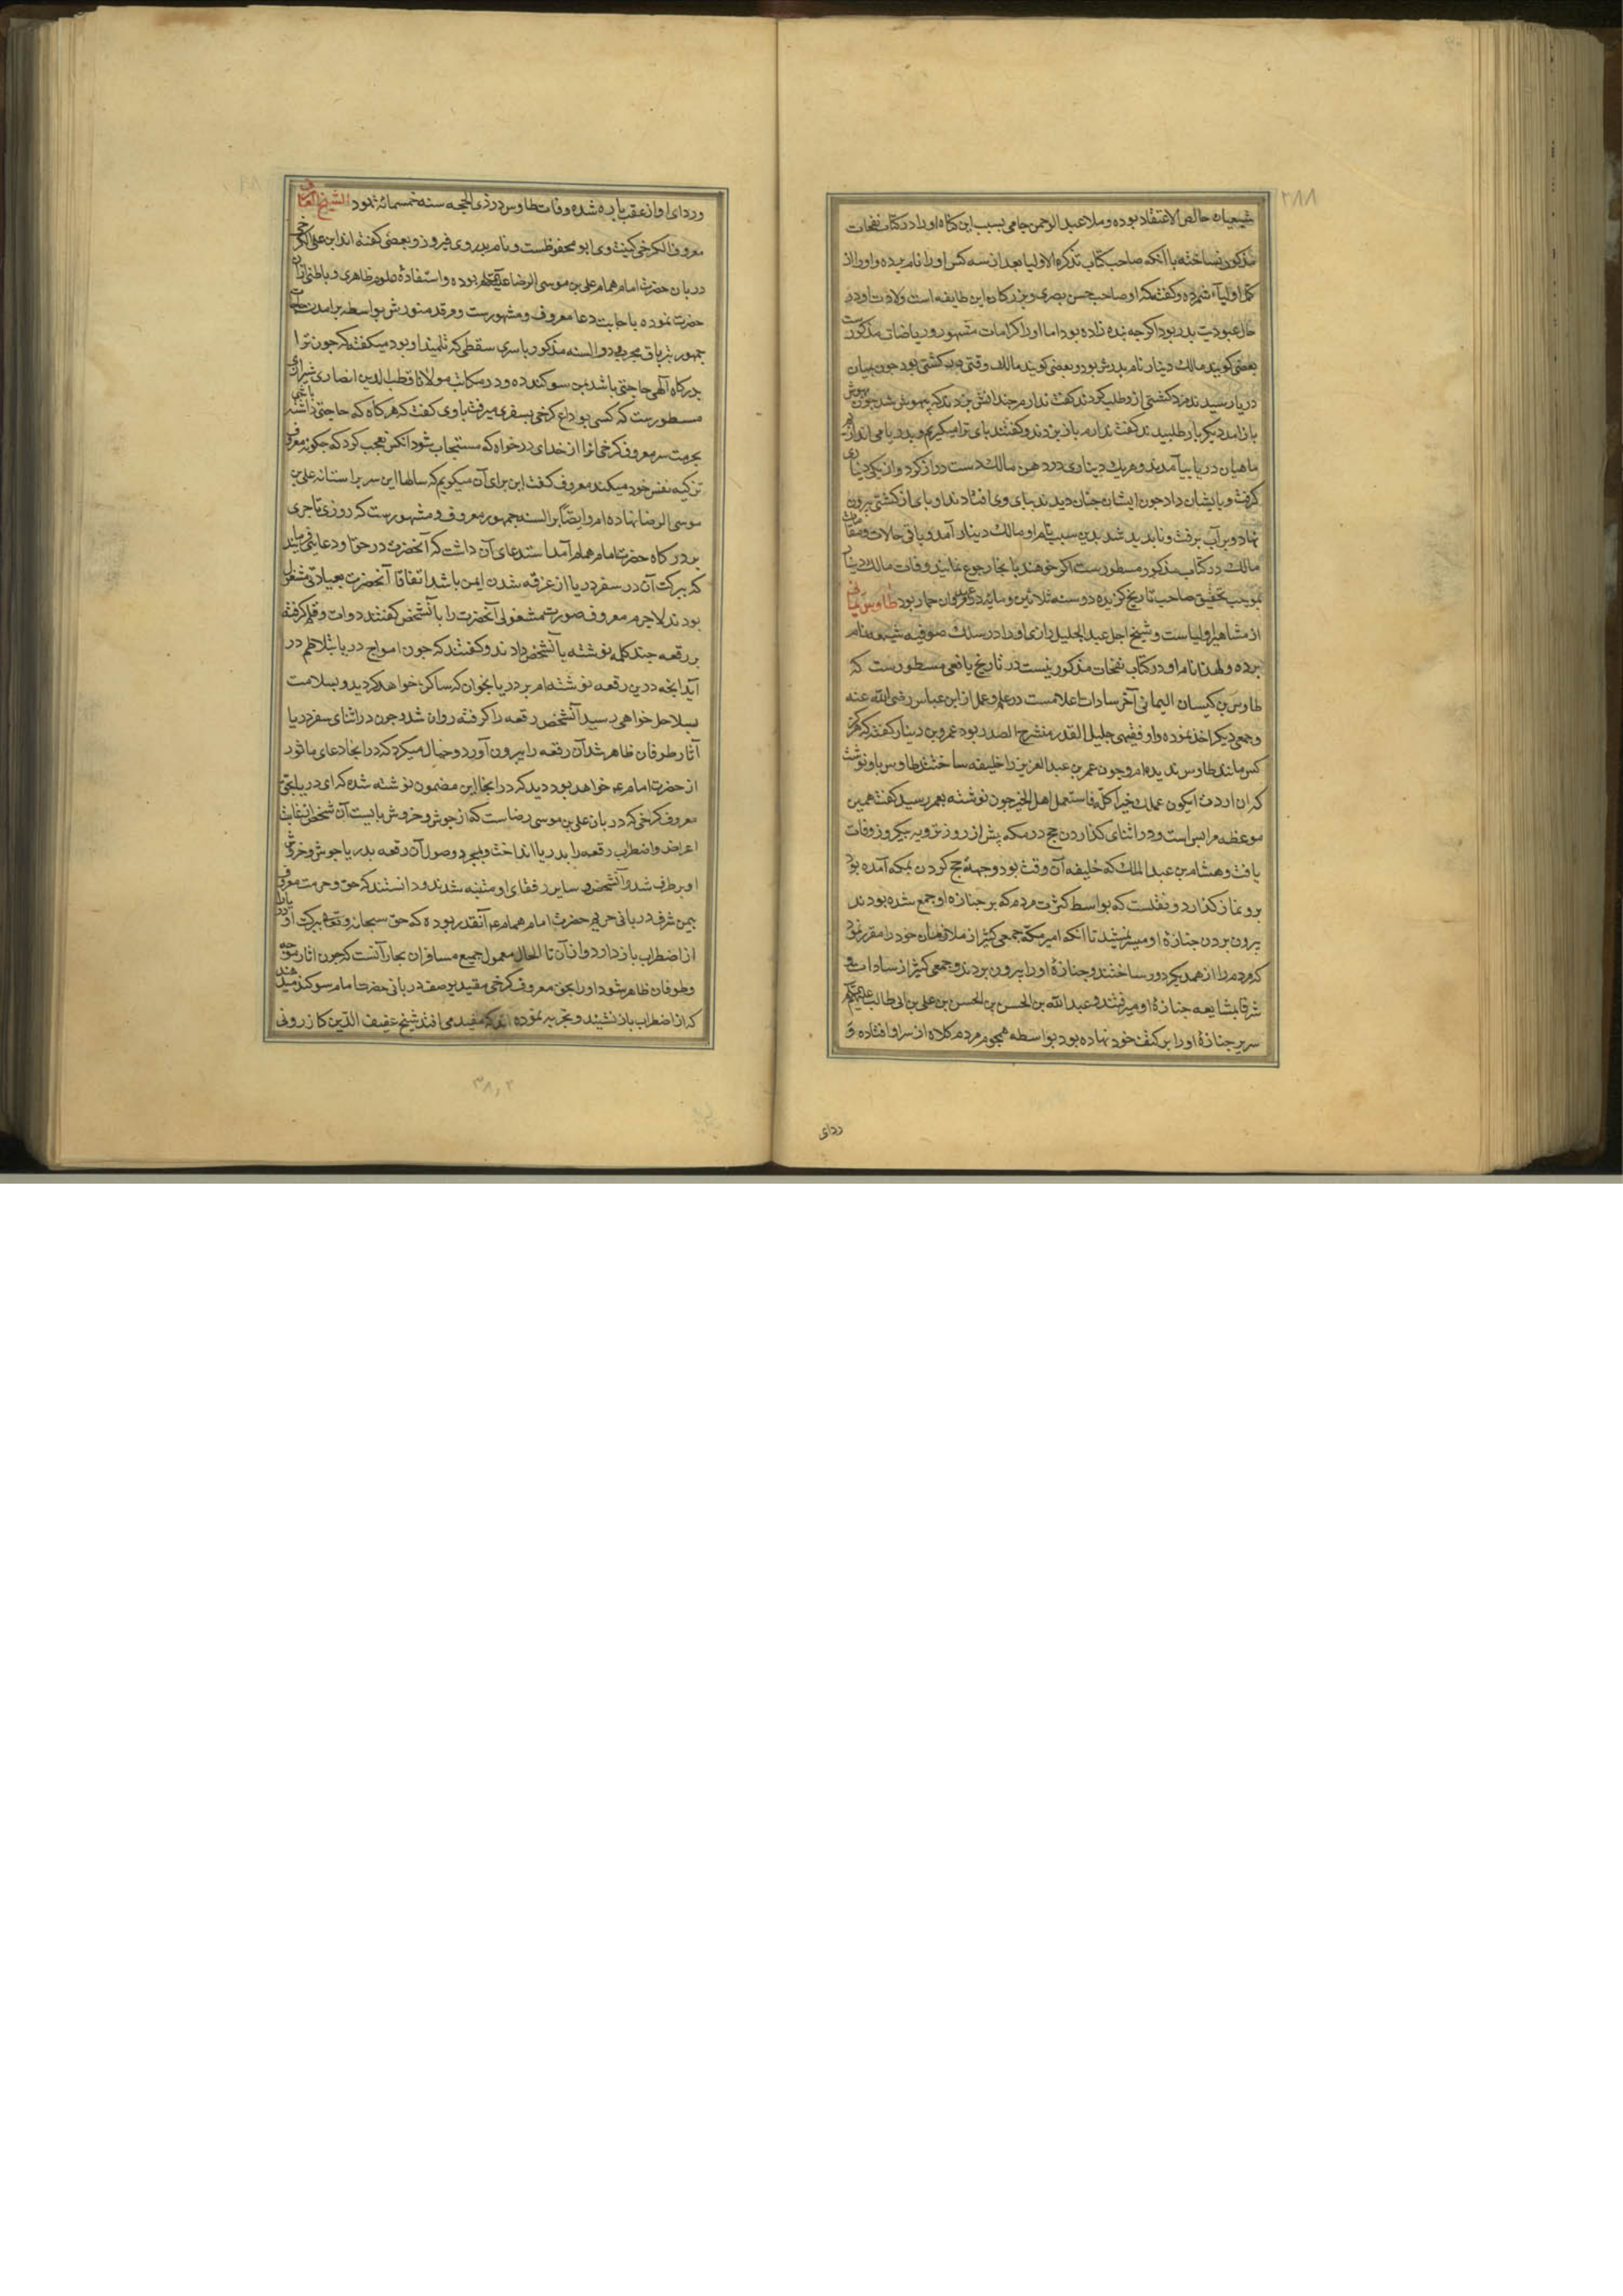 ۲۸۸
شیعیان خالص الاعتقاد بوده و ملا عبد الرحمن جامی بسبب این کناه او را در کتاب نفحات
مذکور نساخته با آنکه صاحب کتاب تذکره الاولیا بعد از سه کس او را نام برده و او را از
کمل اولیاء شمرده و کفته که او صاحب حسن بصری و بزرکان این طایفه است ولادت او در
حال عبودیت پدر بود اکرچه بنده زاده بود اما او را کرامات مشهور و ریاضات مذکورست
بعضی کویند مالک دینار نام پدرش بود و بعضی کویند مالک وقتی در کشتی بود چون بمیان
دریا رسیدند مزد کشتی ازو طلب کردند کفت ندارم چندانش بزدند که بیهوش شد چون بهوش
باز آمد دیکر بار طلبیدند کفت ندارم باز بزدند و کفتند پای ترا میکیریم و بدریا می اندازیم
ماهیان دریا بیامدند و هر یک دیناری در دهن مالک دست دراز کرد و از یکی دیناری
کرفت و بایشان داد چون ایشان چنان دیدند بپای وی افتادند او پای از کشتی بیرون
نهاد و بر آب برفت و ناپدید شد بدین سبب نام او مالک دینار آمد و باقی حالات و مقامات
مالک در کتاب مذکور مسطورست اکر خواهند بانجا رجوع نمایند وفات مالک دینار
بموجب تحقیق صاحب تاریخ کزیده در سنه ثلاثین و مایه در عهد مروان حمار بود طاوس یمانی
از مشاهیر اولیاست و شیخ اجل عبد الجلیل رازی او را در سلک صوفیه شیعه نام
برده و لهذا نام او در کتاب نفحات مذکور نیست در تاریخ یافعی مسطورست که
طاوس بن کیسان الیمانی آخر سادات اعلامست در علم و عمل از ابن عباس رضی الله عنه
و جمعی دیکر اخذ نموده و او فقیهی جلیل القدر منشرح الصدر بود عمرو بن دینار کفته که هرکز
کس مانند طاوس ندیده ام و چون عمر بن عبد العزیز را خلیفه ساختند طاوس باو نوشت
که ان اردت ان یکون عملک خیرا کله فاستعمل اهل الخیر چون نوشته بعمر رسید کفت همین
موعظه مرا بس است و در اثنای کذاردن حج در مکه پیش از روز ترویه بیکروز وفات
یافت و هشام بن عبد الملک که خلیفه آن وقت بود و جهة حج کردن بمکه آمده بود
برو نماز کذارد و نقلست که بواسطه کثرت مردم که بر جنازه او جمع شده بودند
بیرون بردن جنازه او میسر نمیشد تا آنکه امیر مکه جمعی کثیر از ملازمان خود را مقرر نمود
که مردم را از همدیکر دور ساختند و جنازه او را بیرون بردند و جمعی کثیر از سادات و
شرفا بمشایعه جنازه او میرفتند و عبد الله بن الحسن بن الحسن بن علی بن ابی طالب علیهم
سریر جنازه او را بر کتف خود نهاده بود بواسطه هجوم مردم کلاه از سر او افتاده و
ردای
و ردای او از عقب پاره شده وفات طاوس در ذی الحجه سنه خمسمائه نمود الشیخ العارف
معروف الکرخی کنیت وی ابو محفوظست و نام پدر وی فیروز و بعضی کفته اند ابن علی الکرخی
دربان حضرت امام همام علی بن موسی الرضا علیه بوده و استفاده علوم ظاهری و باطنی از آن
حضرت نموده باجابت دعا معروف و مشهورست و مرقد منورش بواسطه برآمدن حاجات
جمهور بتریاق مجرب در السنه مذکور با سری سقطی که تلمیذ او بود میکفته که چون ترا
بدرکاه آلهی حاجتی باشد بمن سوکند ده و در مکاتیب مولانا قطب الدین انصاری شیرازی
مسطورست که کسی بوداع کرخی بسفری میرفت باوی کفت که هرکاه که حاجتی داشته باشی
بحرمت سر معروف کرخی آنرا از خدای درخواه که مستجاب شود آنکس تعجب کرد که چکونه معروف
تزکیه نفس خود میکند معروف کفت این برای آن میکویم که سالها این سر بر استانه علی بن
موسی الرضا نهاده ام و ایضا بر السنه جمهور معروف و مشهورست که روزی تاجری
بدرکاه حضرت امام همام آمد استدعای آن داشت که آنحضرت در حق او دعایی فرمایند
که ببرکت آن در سفر دریا از غرقه شدن ایمن باشد اتفاقا آنحضرت بعبادتی مشغول
بودند لاجرم معروف صورت مشغولی آنحضرت را بآنشخص کفتند دوات و قلم کرفته
بر رقعه چند کلمه نوشته بآنشخص دادند و کفتند که چون امواج دریا بتلاطم در
آید آنچه درین رقعه نوشته ام بر دریا بخوان که ساکن خواهد کردید و بسلامت
بساحل خواهی رسید آنشخص رقعه را کرفته روان شد و چون در اثنای سفر دریا
آثار طوفان ظاهر شد آن رقعه را بیرون آورد و خیال میکرد که در انجا دعای ماثور
از حضرت امام خواهد بود دید که در انجا این مضمون نوشته شده که ای دریا بحق
معروف کرخی که دربان علی بن موسی رضاست که از جوش و خروش بایست آن شخص از غایت
اعراض و اضطراب رقعه را بدریا انداخت و بمجرد وصول آن رقعه بدریا جوش و خروش
او برطرف شد و آنشخص و سایر رفقای او متنبه شدند و دانستند که حق و حرمت معروف
بیمن شرف دربانی حریم حضرت امام همام آنقدر بوده که حق سبحانه و تعالی ببرکت او دریا را
از اضطراب باز دارد و از آن تا الحال معمول جمیع مسافران بحار آنست که چون اثار موجه
و طوفان ظاهر شود او را بحق معروف کرخی مقید بوصف دربانی حضرت امام سوکند میدهند
که از اضطراب باز نشیند و تجربه نموده اند که مفید می افتد شیخ عفیف الدین کازرونی